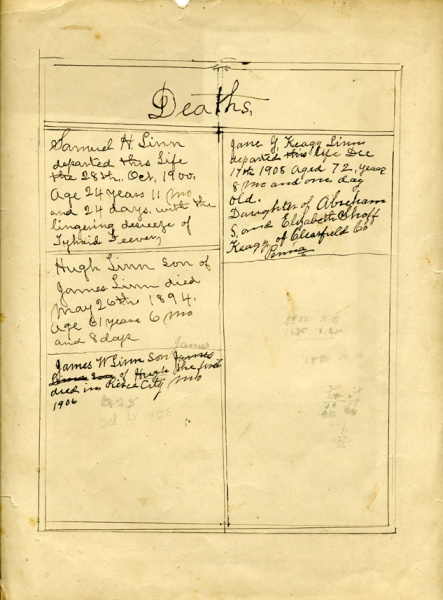 Deaths.
Samuel H. Linn
departed this Life
the 28th. Oct. 1900.
Age 24 years 11 mo
and 24 days. with the
lingering deseeze of
Typhoid Feever
Hugh Linn son of
James Linn died
May 26th 1894.
Age 61 years 6 mo
and 8 days
James W Linn Son James
of Hugh the first
died in Peirce City Mo
1906
Jane G. Keagy Linn
departed this life Dec
17th 1908 aged 72, years
8 mo and one day
old.
Daughter of Abraham
S. and Elizabeth
Keagy of Clearfield Co
Penna